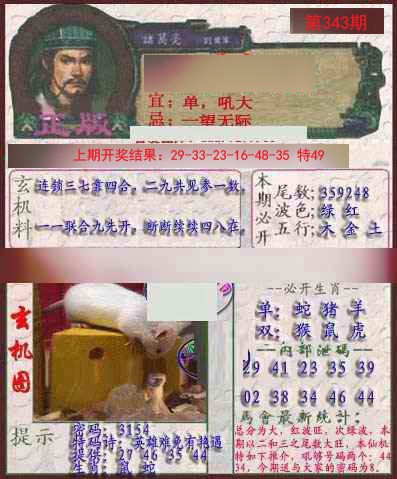 第343期
諸葛亮
正版
宜：单，吼大
忌：一望无际
上期开奖结果：29-33-23-16-48-35 特49
玄机料
连锁三七靠四合，二九共见参一数，
一一联合九先开，断断续续四八在，
本期必开
尾数：359248
波色：绿 红
五行：木 金 土
玄机图
必开生肖
单：蛇 猪 羊
双：猴 鼠 虎
内部泄码
29 41 23 35 39
02 38 34 46 44
馬會最新統計：
总分为大，红波旺，次绿波，本
期以二和三之尾数大旺，本仙机
特如下推介，吼够号码两个：44
34，今期送与大家的密码为8。
提示
密码：3154
特码诗：英雄难免有接遇
提供：27 46 35 44
生肖：鼠 蛇